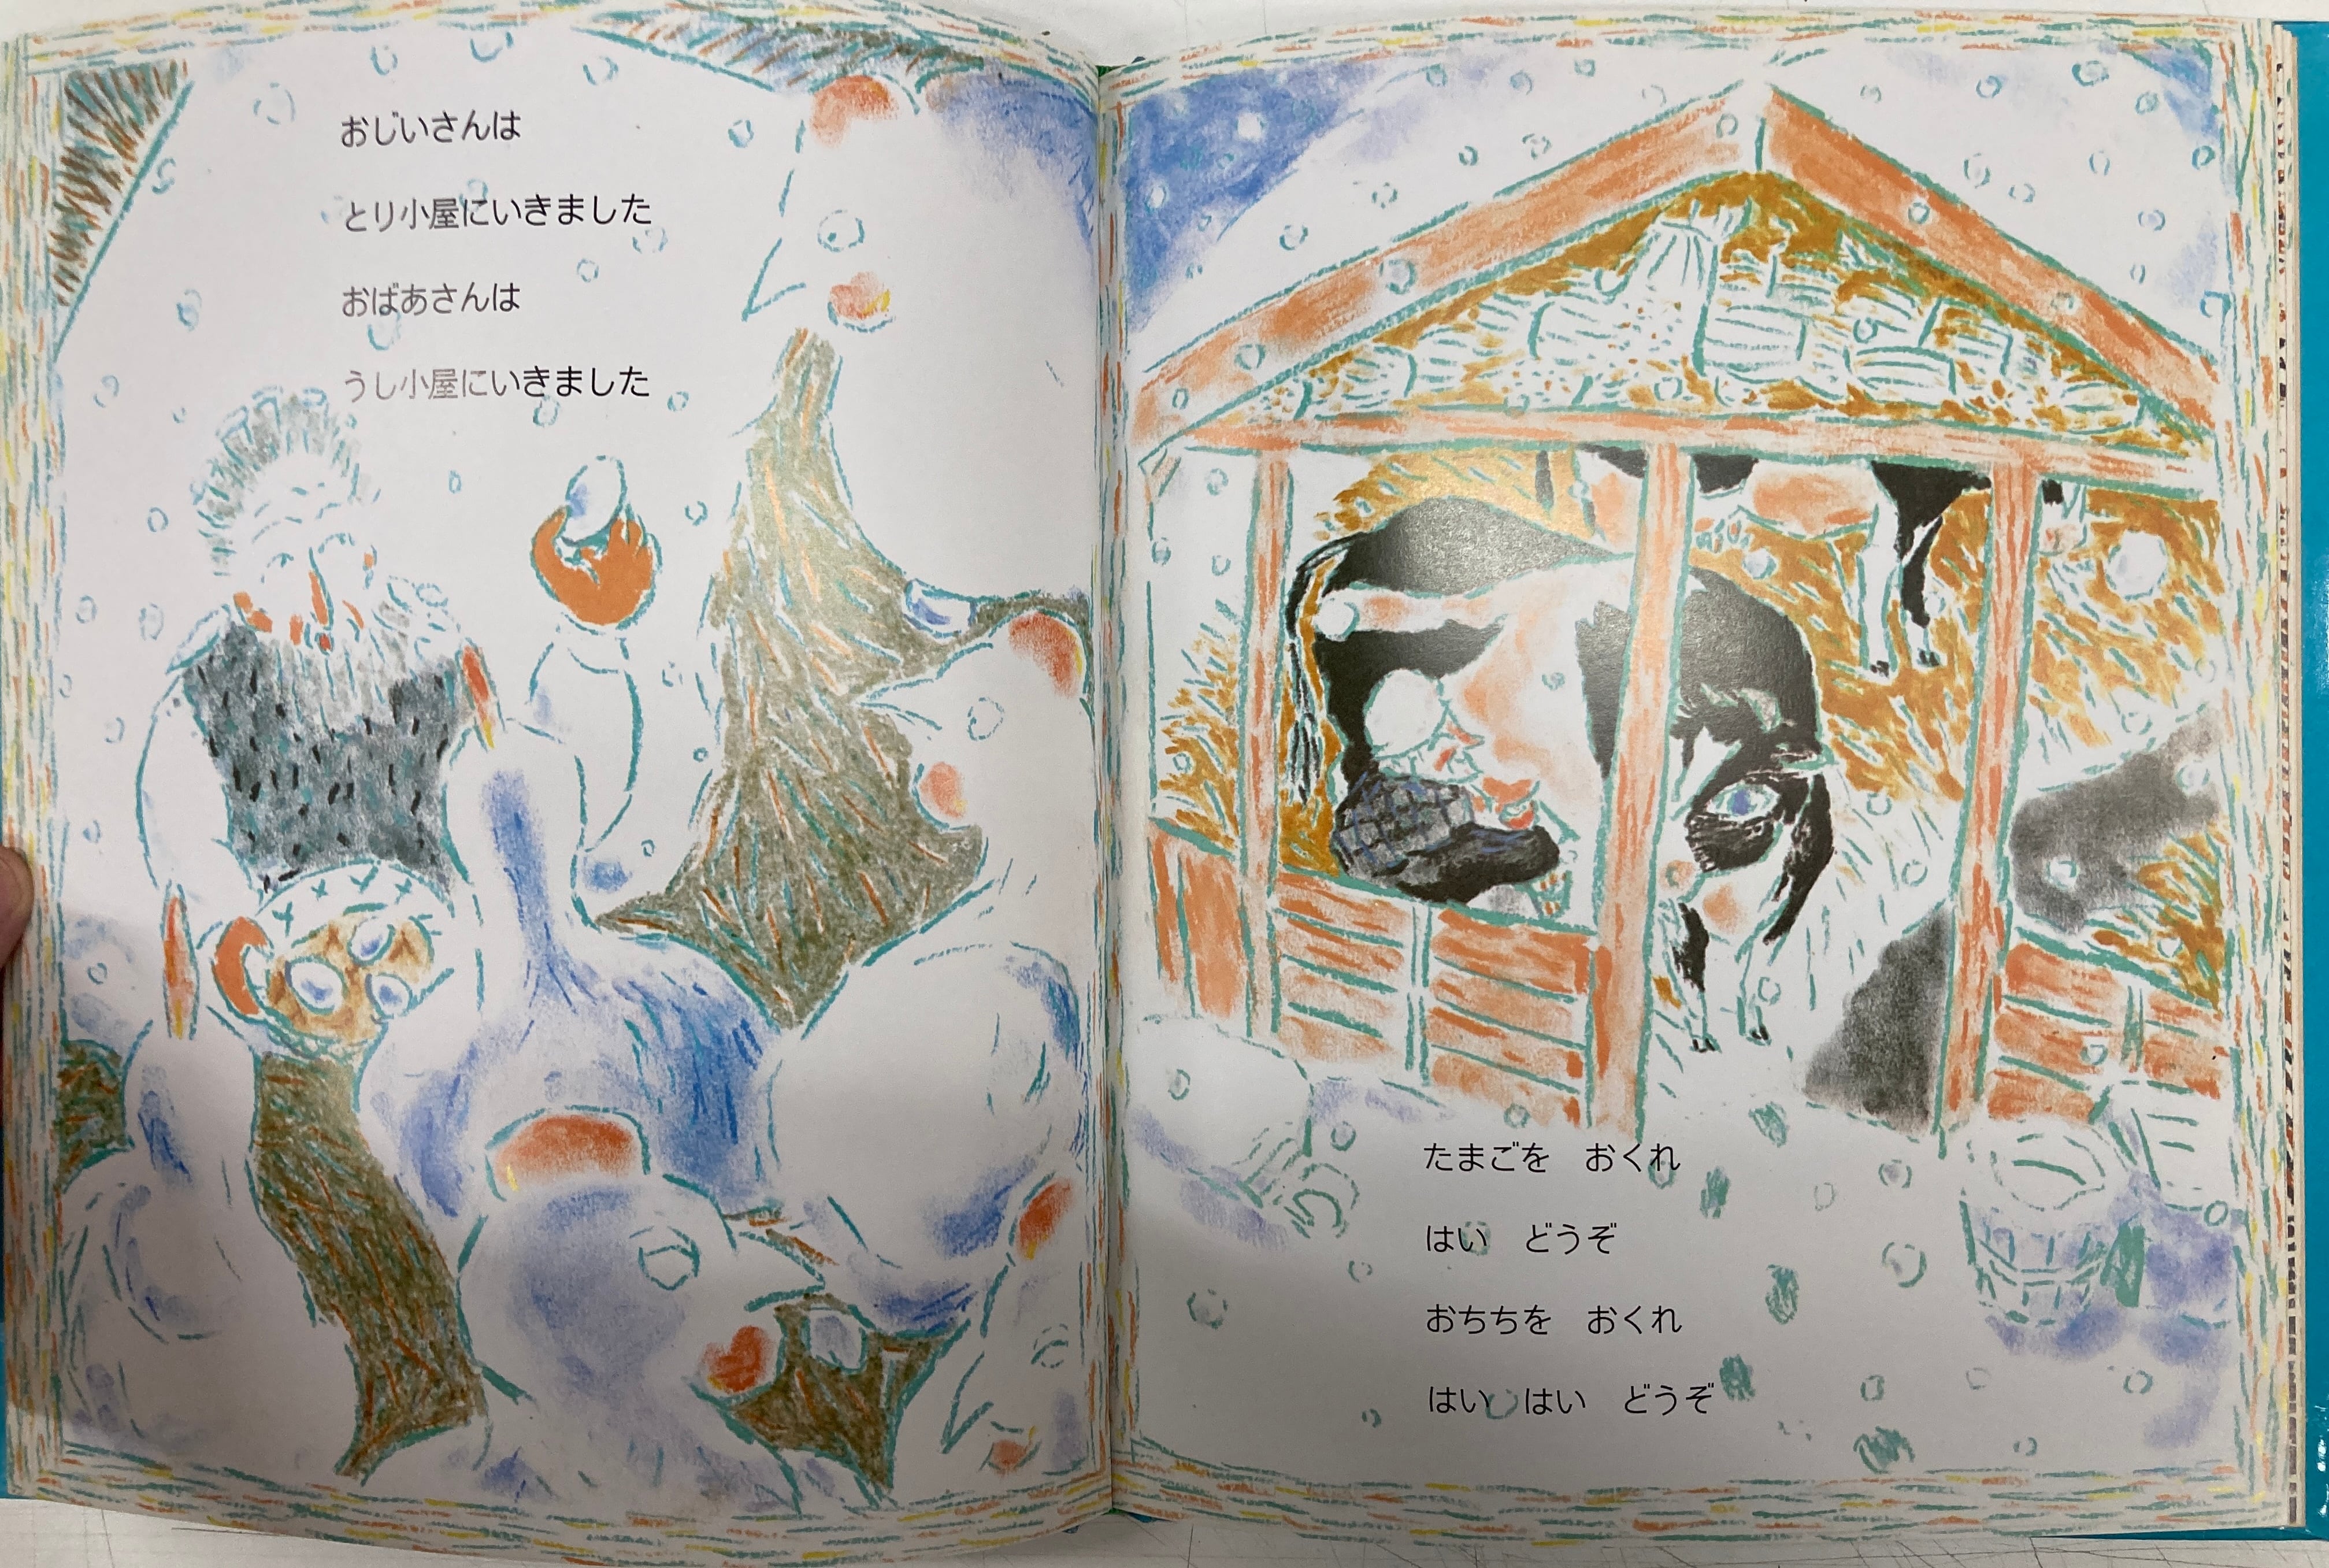 おじいさんは
とり小屋にいきました
おばあさんは
うし小屋にいきました
たまごを　おくれ
はい　どうぞ
おちちを　おくれ
はい　はい　どうぞ